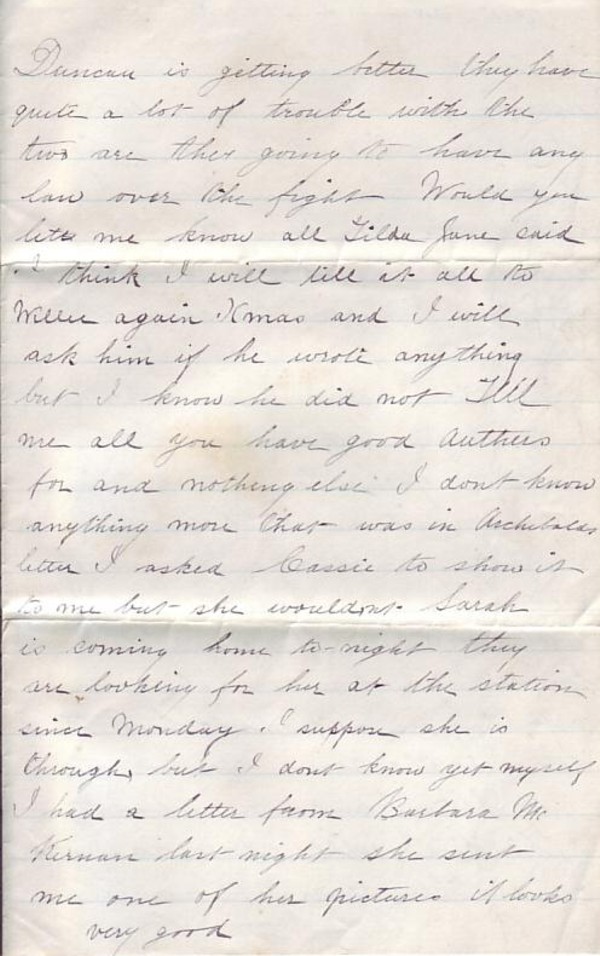 Duncan is getting better they have
quite a lot of trouble with the
two are they going to have any
law over the fight Would you
let me know all Tilda Jane said
I think I will tell it all to
Willie again Xmas and I will
ask him if he wrote anything
but I know he did not Tell
me all you have good Authers
for and nothing else I dont know
anything more that was in Archibalds
letter I asked Cassie to show it
to me but she wouldnt Sarah
is coming home to-night they
are looking for her at the station
since Monday. I suppose she is
through, but I dont know yet myself
I had a letter from Barbara Mc
Kernan last night she sent
me one of her pictures it looks
very good